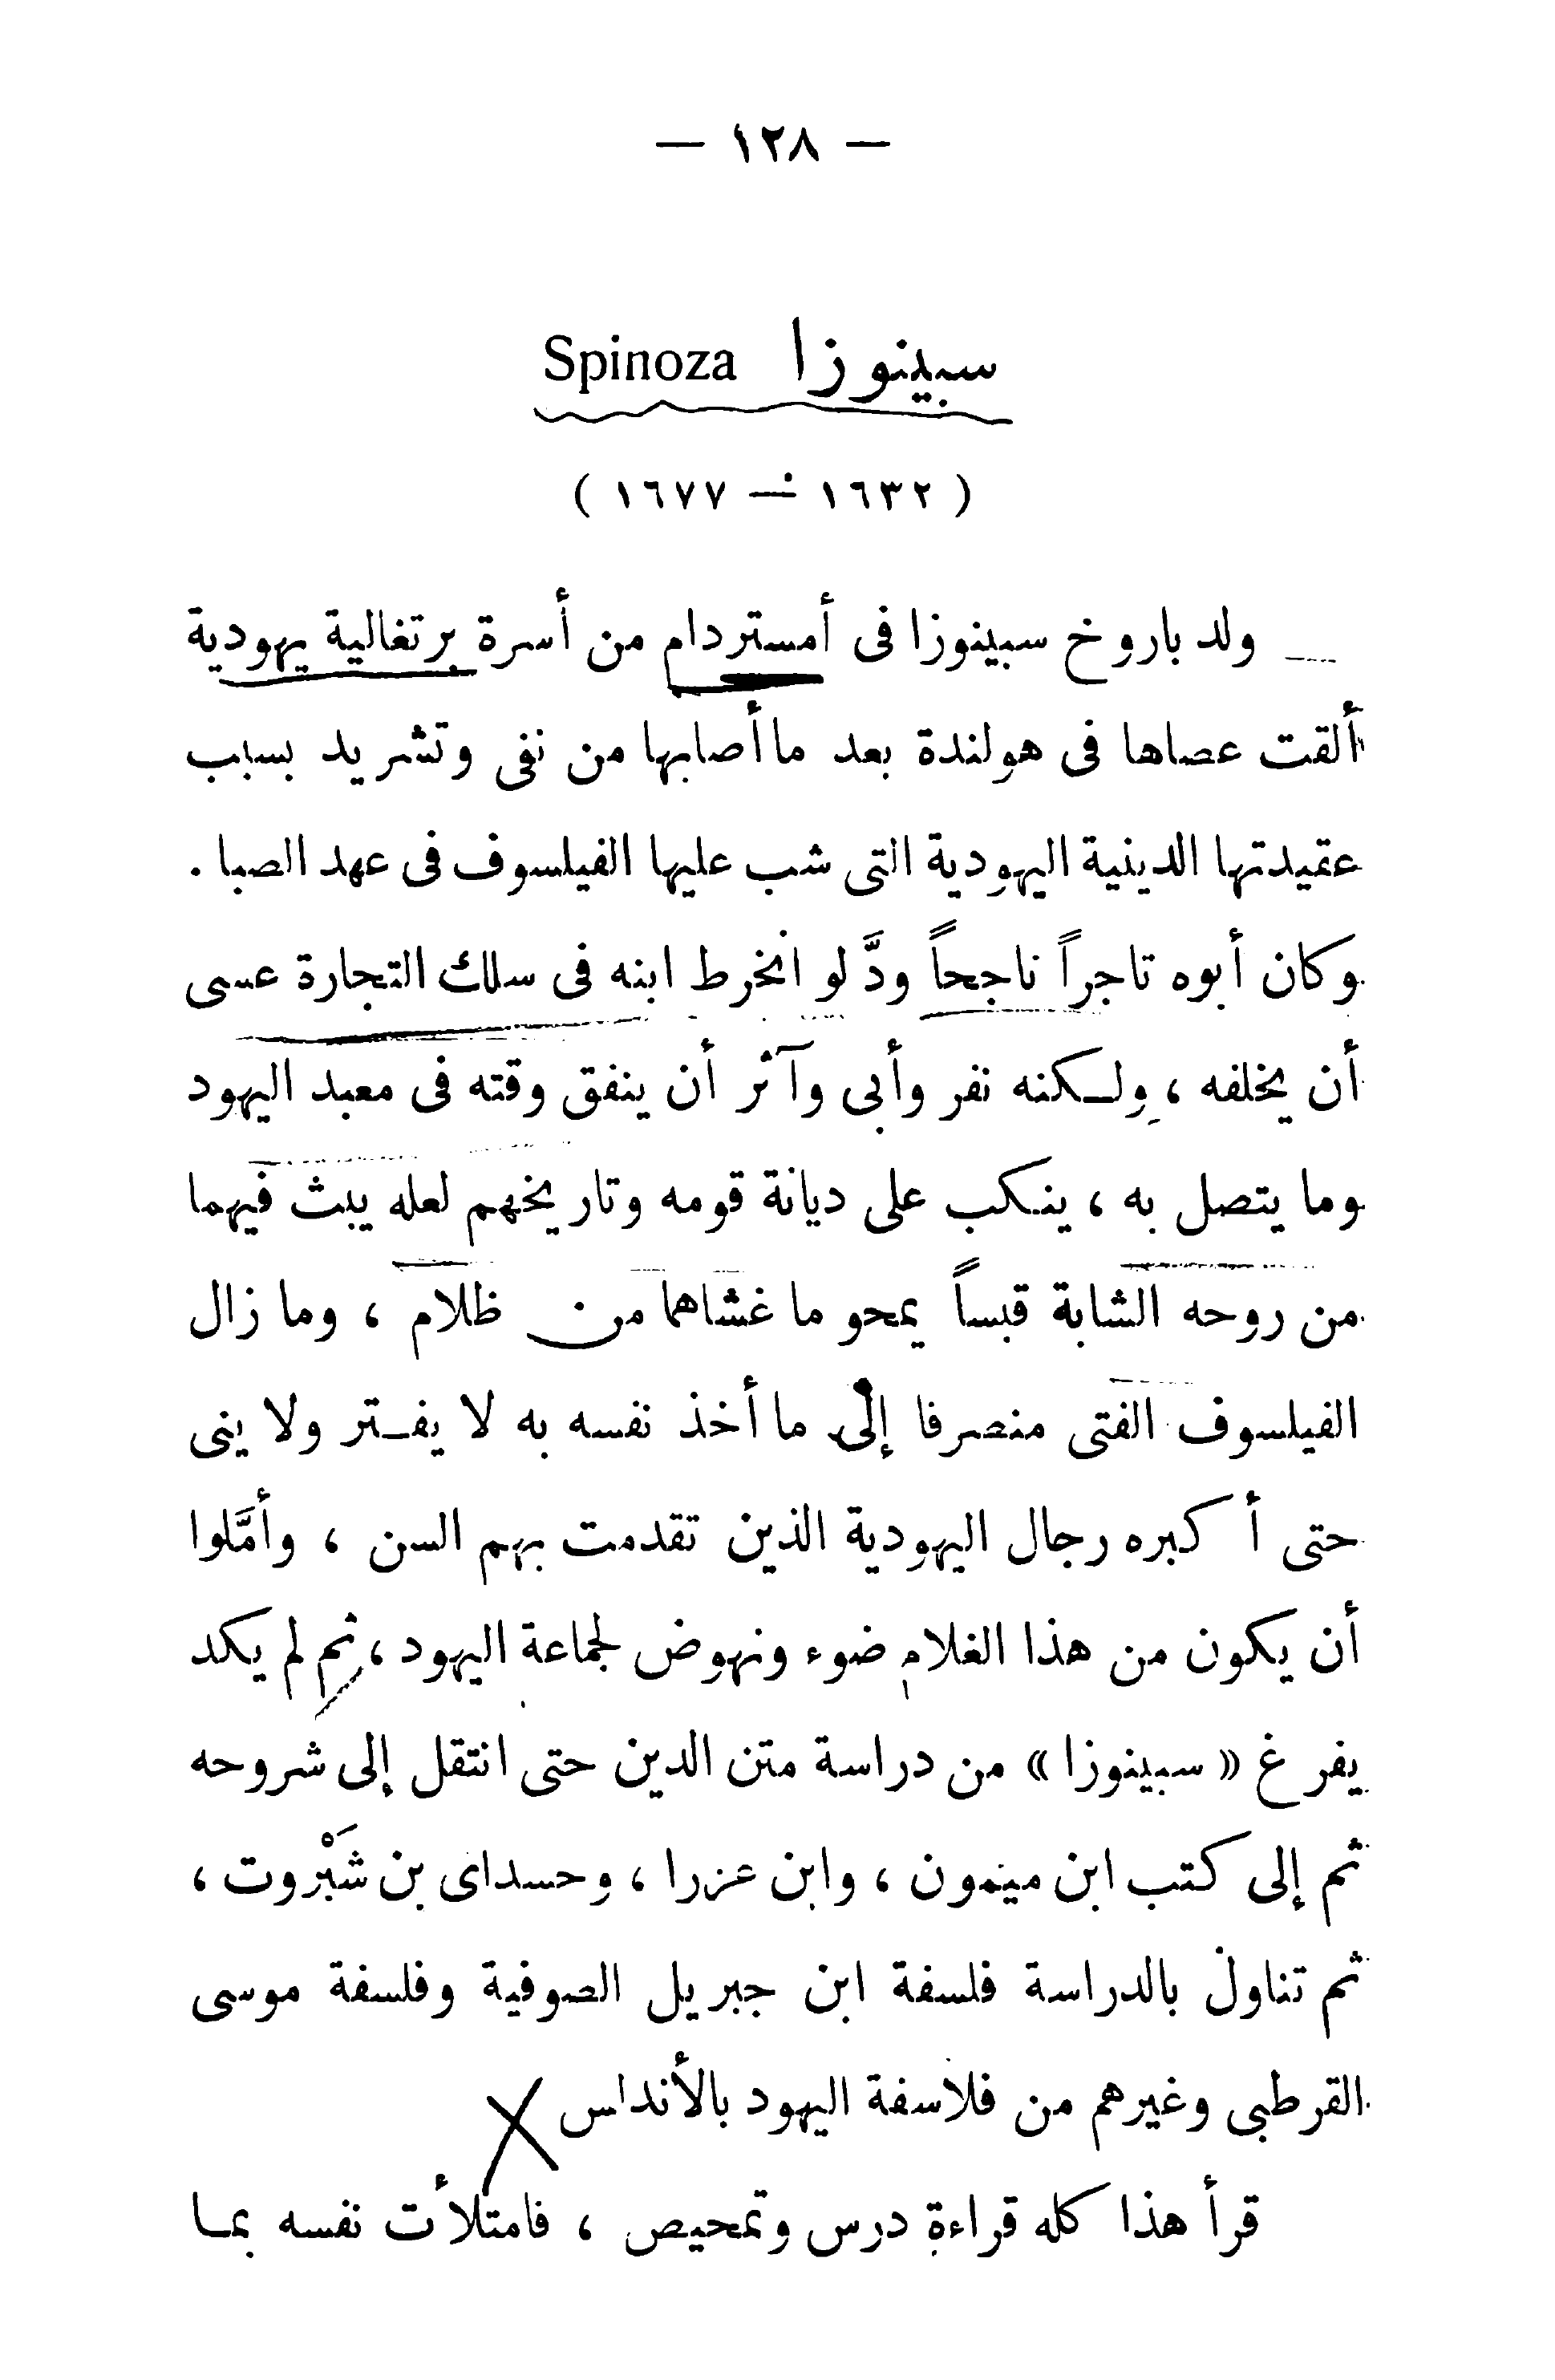 — ١٢٨ —
سبينوزا Spinoza
( ١٦٣٢ — ١٦٧٧ )
ولد باروخ سبينوزا فى أمستردام من أسرة برتغالية يهودية
ألقت عصاها فى هولندة بعد ما أصابها من نفى وتشريد بسبب
عقيدتها الدينية اليهودية التى شب عليها الفيلسوف فى عهد الصبا .
وكان أبوه تاجراً ناجحاً ودَّ لو انخرط ابنه فى سلك التجارة عسى
أن يخلفه ، ولكنه نفر وأبى وآثر أن ينفق وقته فى معبد اليهود
وما يتصل به ، ينكب على ديانة قومه وتاريخهم لعله يبث فيهما
من روحه الشابة قبساً يمحو ما غشاهما من ظلام ، وما زال
الفيلسوف الفتى منصرفا إلى ما أخذ نفسه به لا يفتر ولا ينى
حتى أكبره رجال اليهودية الذين تقدمت بهم السن ، وأمَّلوا
أن يكون من هذا الغلام ضوء ونهوض لجماعة اليهود ، ثم لم يكد
يفرغ « سبينوزا » من دراسة متن الدين حتى انتقل إلى شروحه
ثم إلى كتب ابن ميمون ، وابن عزرا ، وحسداى بن شَبْروت ،
ثم تناول بالدراسة فلسفة ابن جبريل الصوفية وفلسفة موسى
القرطبى وغيرهم من فلاسفة اليهود بالأندلس
قرأ هذا كله قراءة درس وتمحيص ، فامتلأت نفسه بما